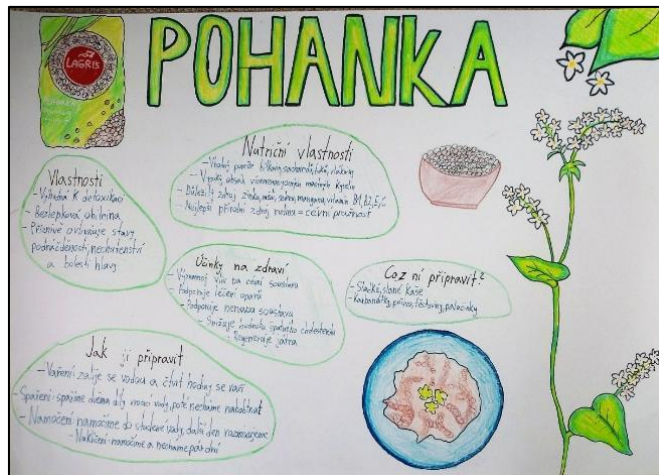 POHANKA
LAGRIS
Vlastnosti
- Vhodná k detoxikaci
- Bezlepková obilnina
- Příznivě ovlivňuje stavy
podrážděnosti, nechutenství
a bolesti hlavy
Nutriční vlastnosti
- Vhodný poměr bílkovin, sacharidů, tuků, vlákniny
- Vysoký obsah vícenenasycených mastných kyselin
- Důležitý zdroj zinku, mědi, selenu, manganu, vitamín B1, B2, E, C
- Nejlepší přírodní zdroj rutinu = cévní pružnost
Účinky na zdraví
- Významný vliv na cévní soustavu
- Podporuje léčení
- Podporuje nervovou soustavu
- Snižuje hodnotu špatného cholesterolu
- Regeneruje játra
Co z ní připravit?
- Sladké, slané kaše
- Karbanátky, těstoviny, palačinky
Jak ji připravit
- Vaření: zalije se vodou a čtvrt hodiny se vaří
- Spaření: spaříme dvěma díly vroucí vody, poté necháme nabobtnat
- Namočení: namočíme do studené vody, další den
- Nakličení: namočíme a necháme půl dní